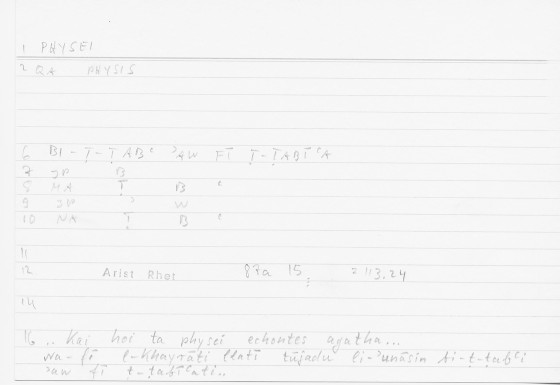 1 PHYSEI
2 QA PHYSIS
6 BI-Ṭ-ṬABʿ ʾAW FĪ Ṭ-ṬABĪʿA
7 JP B
8 MA Ṭ B ʿ
9 JP ʾ W
10 NA Ṭ B ʿ
11
12 Arist Rhet 87a 15; = 113.24
14
16 .. Kai hoi ta physei echontes agatha...
wa-fī l-khayrāti llatī tūjadu li-ʾunāsin bi-ṭ-ṭabʿi
ʾaw fī ṭ-ṭabīʿati..